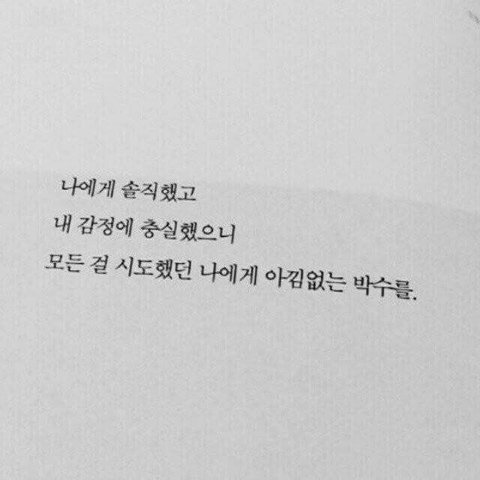 나에게 솔직했고
내 감정에 충실했으니
모든 걸 시도했던 나에게 아낌없는 박수를.